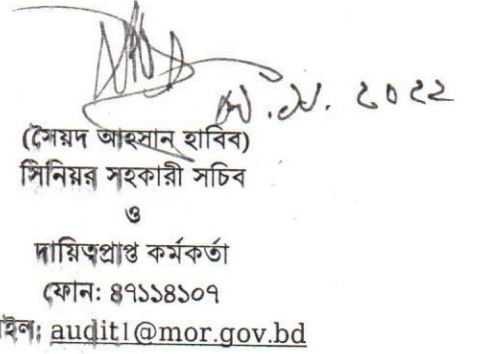 ২০২২
(সৈয়দ আহসান হাবিব)
সিনিয়র সহকারী সচিব
ও
দায়িত্বপ্রাপ্ত কর্মকর্তা
ফোন: ৪৭১১৪১০৭
ইল: audit1@mor.gov.bd